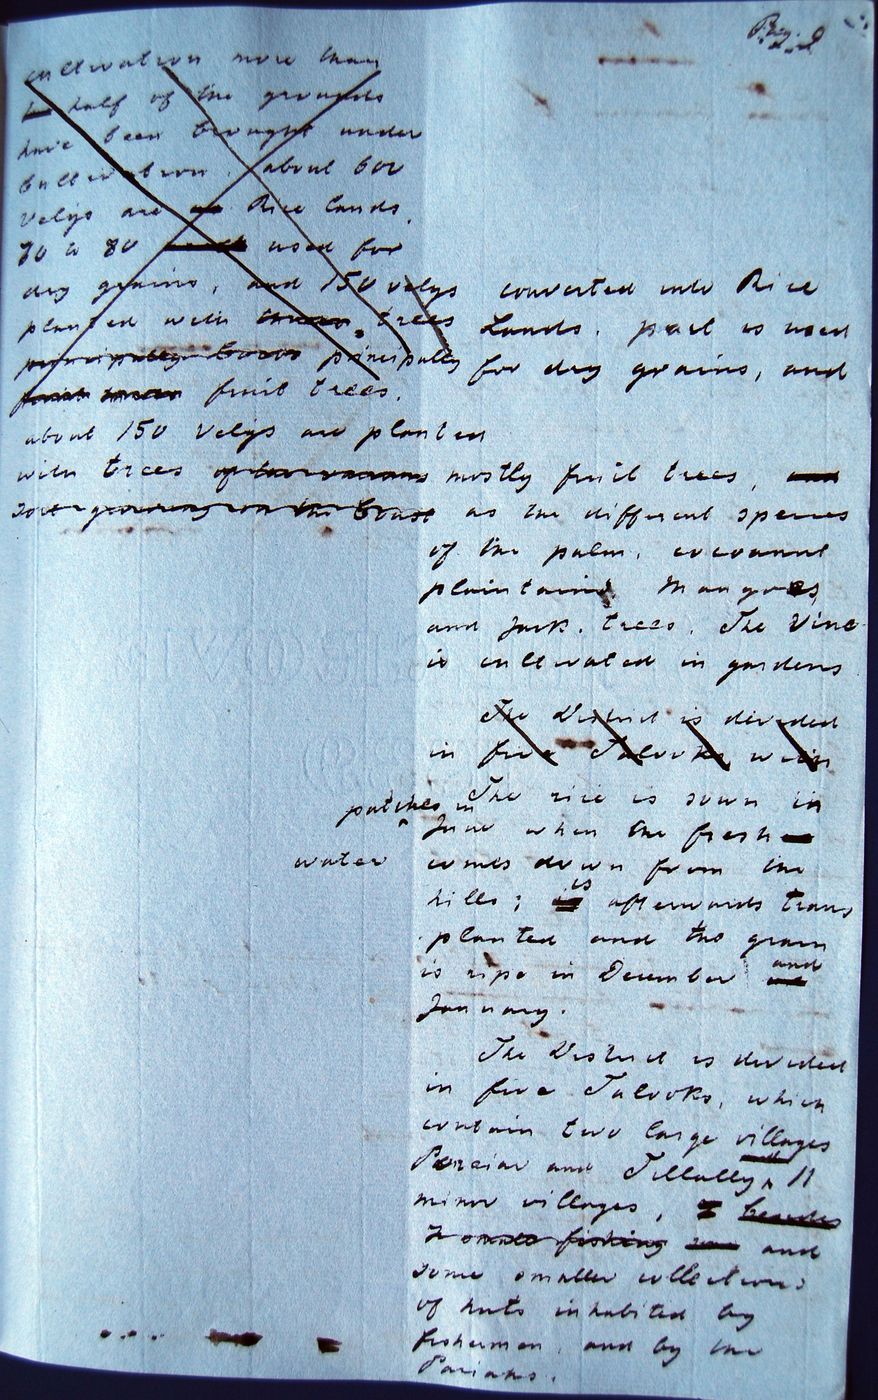 cultivation more than
half of the grounds
have been brought under
Cultivation. about 600
Velys are Rice lands.
70 to 80 used for
dry grains, and 150 velys
planted with trees
principally
fruit trees.
about 150 Velys are planted
with trees
growing on the Coast
converted into Rice
Lands. part is used
for dry grains, and
mostly fruit trees, and
as the different species
of the palm, cocoanut
plaintains. Mangoes,
and Jack. trees. The Vine
is cultivated in gardens
The District is divided
in five Talooks, with
patches in
water
The rice is sown in
June when the fresh
comes down from the
hills; is afterwards trans
planted and the grain
is ripe in December and
January.
The District is divided
in five Talooks, which
contain two large villages
and Tillally, 11
minor villages, besides
fishing and
some smaller collections
of huts inhabited by
fishermen, and by the
Pariahs.